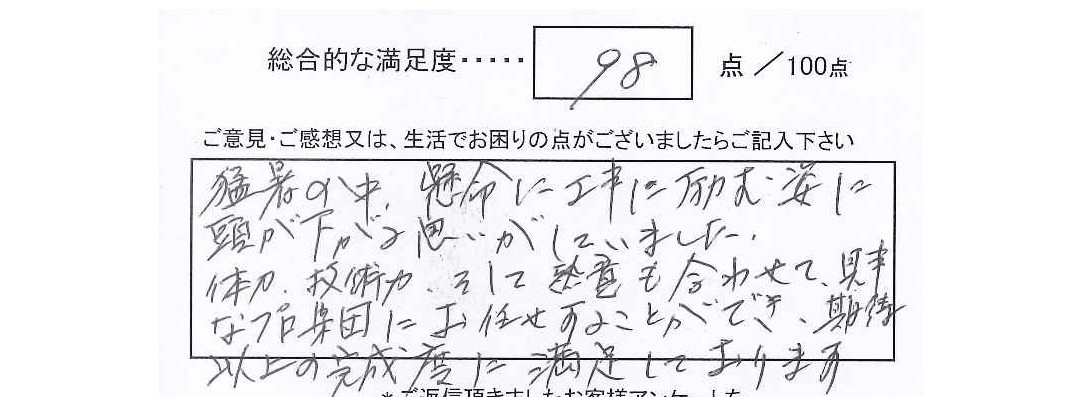 総合的な満足度・・・・・ 98 点 ／100点
ご意見・ご感想又は、生活でお困りの点がございましたらご記入下さい
猛暑の中、懸命に工事に励む姿に
頭が下がる思いがしていました。
体力、技術力、そして熱意も合わせて、見事
なプロ集団にお任せすることができ、期待
以上の完成度に満足しております
＊ご返信頂きましたお客様アンケートを